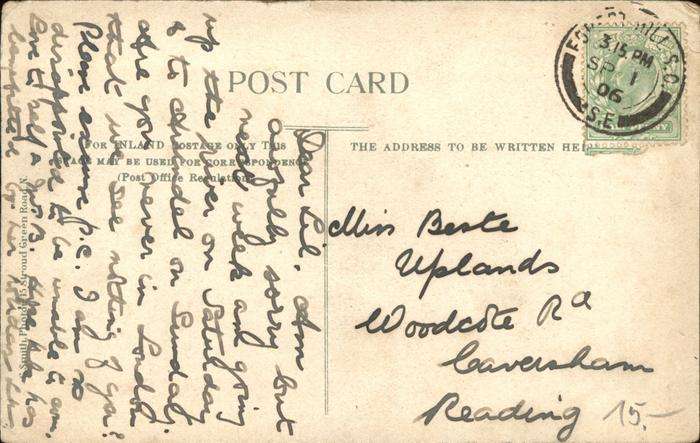 POST CARD
FOR INLAND POSTAGE ONLY THIS
SPACE MAY BE USED FOR CORRESPONDENCE
(Post Office Regulation)
THE ADDRESS TO BE WRITTEN HERE
FOREST HILL S.O.
3.15 PM
SP 1
06
S.E.
Miss Beste
Uplands
Woodcote Rd
Caversham
Reading
15.-
Dear Lil, Am
awfully sorry but
next week am going
up the river on Saturday
& to Arundel on Sunday.
Are you never in London
that we see nothing of you?
Please excuse p.c. I am so
disappointed to be unable to
Photo, 15 Stroud Green Road, N.